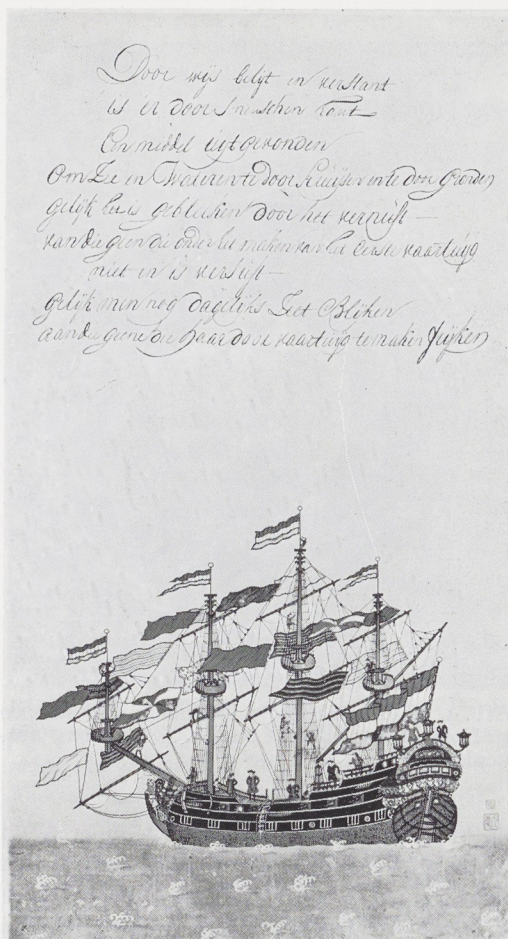 Door wijs belijt en verstant
is er door smenschen kant
Een middel uijtgevonden
Om Zee en Wateren te door kruijsen en te door gronden
gelijk het is gebleeken door het vernuft
van die geen die onder het maken van het eerste vaartuijg
niet en is versuft
gelijk men nog dagelijks Siet Blijken
aan die geene die haar door vaartuijg te maken